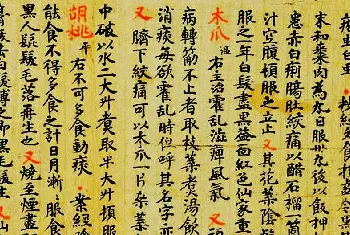 末和棗肉為丸日服卅丸後以飲押
患赤白痢腸肚絞痛以醋石榴一箇
汁空腹頓服之立止 又其花葉陰
服之一年白髮盡黑益面紅色仙家重
木瓜 溫 右主治霍亂澀痺風氣 又
病轉筋不止者取枝葉煮湯飲
消痰每欲霍亂時但呼其名字
又 臍下絞痛可以木瓜一片桑葉
中破以水二大升煮取半大升頓服
胡桃 平 右不可多食動痰 案經
能食不得多食之計日月漸服食
黑人髭髮毛落再生也 又燒至煙盡